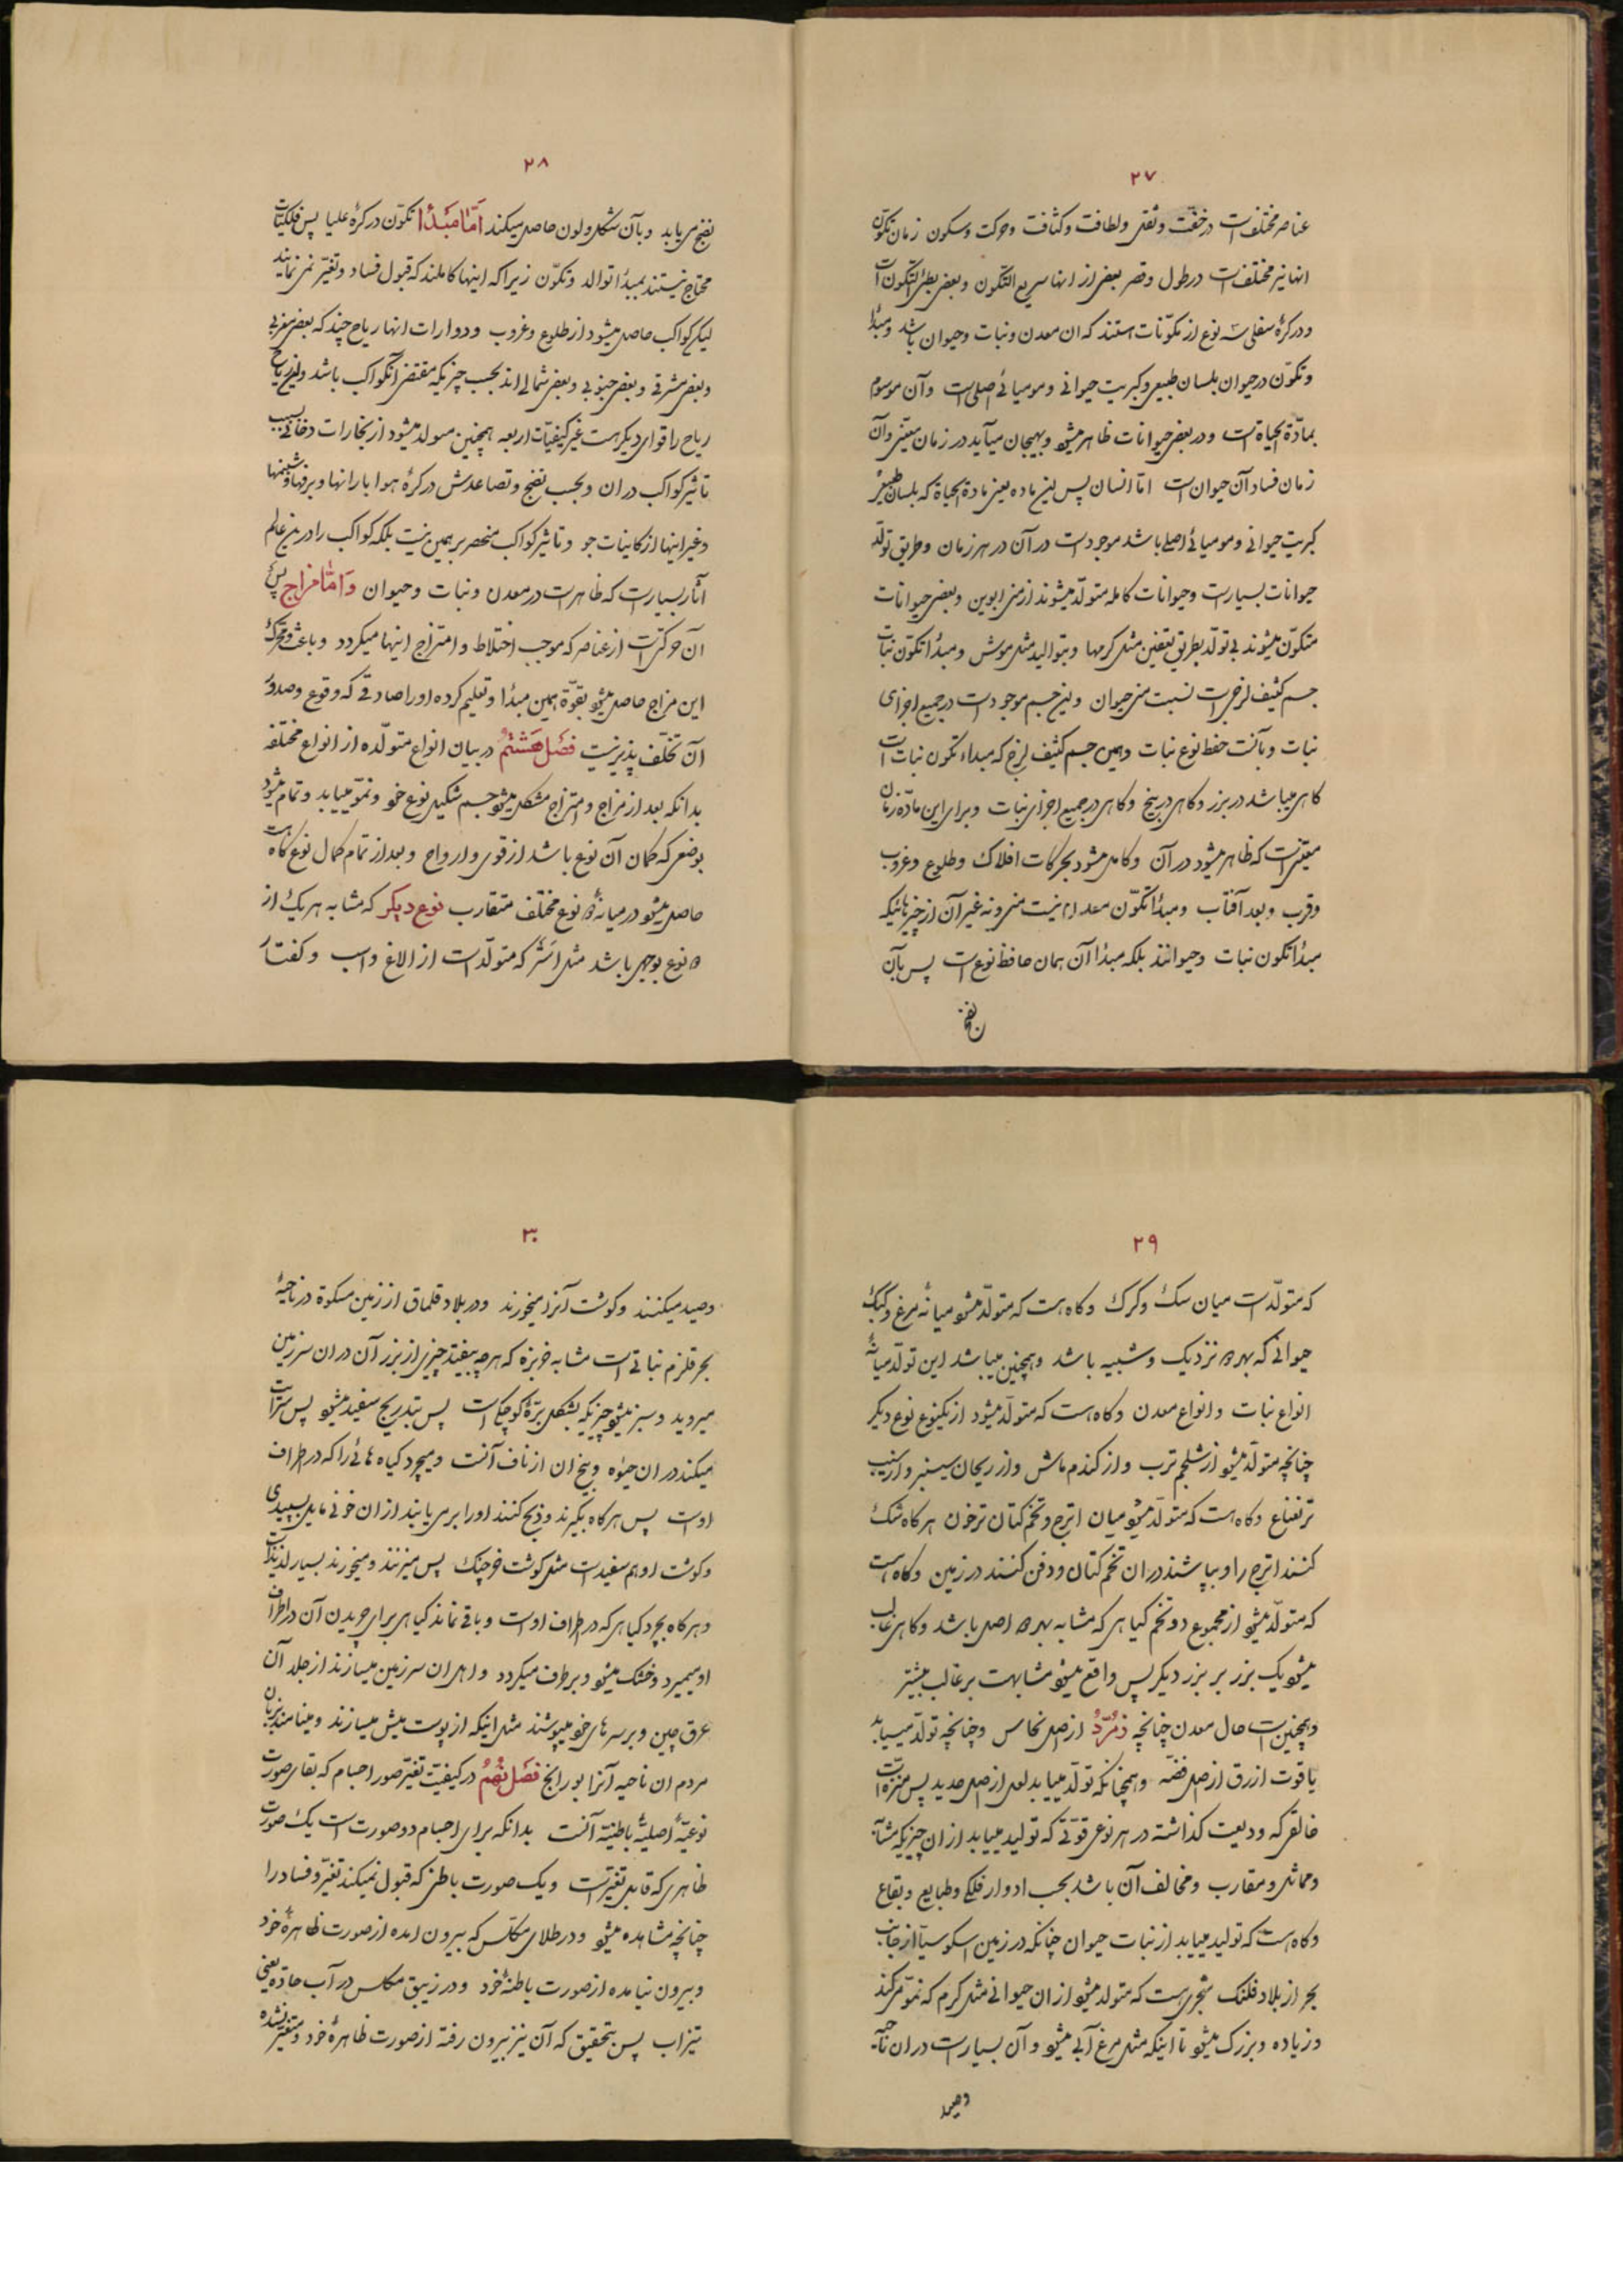 ۲۷
عناصر مختلف است در خفّت و ثقل و لطافت و کثافت و حرکت و سکون زمان تکوّن
انها نیز مختلف است در طول و قصر بعضی از انها سریع التکّون و بعضی بطئ التکّون است
و در کرهٔ سفلی سه نوع از مکوّنات هستند که ان معدن و نبات و حیوان باشد و مبدأ
و تکوّن در حیوان بلسان طبیعی و کبریت حیوانی و مومیائی اصلی است و آن موسوم
بمادّة الحیاة است و در بعض حیوانات ظاهر میشود و بهیجان میآید در زمان معیّن و آن
زمان فساد آن حیوان است امّا انسان پس این ماده یعنی مادة الحیاة که بلسان طبیعی
کبریت حیوانی و مومیائی اصلی باشد موجود است در آن در هر زمان و طریق تولّد
حیوانات بسیار است و حیوانات کامله متولّد میشوند از منی ابوین و بعضی حیوانات
متکوّن میشوند بی تولّد بطریق تعفین مثل کرمها و بتوالید مثل موش و مبدأ تکوّن نبات
جسم کثیف لزجی است نسبت منی حیوان و این جسم موجود است در جمیع اجزای
نبات و بآنست حفظ نوع نبات و همین جسم کثیف لزج که مبداء تکون نبات است
کاهی میباشد در بزر و کاهی در بیخ و کاهی در جمیع اجزای نبات و برای این مادّه زمان
معیّنی است که ظاهر میشود در آن و کامل میشود بحرکات افلاک و طلوع و غروب
و قرب و بعد آفتاب و مبدأ تکوّن معدن نیست منی و نه غیر آن از چیزهائیکه
مبدأ تکون نبات و حیوانند بلکه مبدأ آن همان حافظ نوع است پس بآن
نضج
۲۸
نضج مییابد و بآن شکل و لون حاصل میکند امّا مبدأ تکوّن در کرهٔ علیا پس فلکیّات
محتاج نیستند بمبدأ توالد و تکوّن زیرا که اینها کاملند که قبول فساد و تغیّر نمی نمایند
لیکن کواکب حاصل میشود از طلوع و غروب و دوارات انها ریاح چند که بعضی مغربی
و بعضی مشرقی و بعضی جنوبی و بعضی شمالی اند بحسب چیزیکه مقتضی آنکواکب باشد و این ریاح
ریاح را قوای دیگر هست غیر کیفیّات اربعه همچنین متولد میشود از بخارات دخانی بسبب
تاثیر کواکب در ان و بحسب نضج و تصاعدش در کرهٔ هوا بارانها و برفها و شبنمها
و غیر اینها از کاینات جو و تاثیر کواکب منحصر بر همین نیست بلکه کواکب را در این عالم
آثار بسیار است که ظاهر است در معدن و نبات و حیوان و امّا مزاج پس
آن حرکتی است از عناصر که موجب اختلاط و امتزاج اینها میکردد و باعث و محرک
این مزاج حاصل میشود بقوّة همین مبدأ و تعلیم کرده او را صادقی که وقوع و صدور
آن تخلّف پذیر نیست فصل هشتم در بیان انواع متولّده از انواع مختلفه
بدانکه بعد از مزاج و امتزاج مشکل میشود جسم بشکل نوع خود و نموّ مییابد و تمام میشود
بوضعی که کمان آن نوع باشد از قوی و ارواح و بعد از تمام کمال نوع کاه هست
حاصل میشود در میانهٔ دو نوع مختلف متقارب نوع دیکر که مشابه هر یک از
دو نوع بوجهی باشد مثل استر که متولّد است از الاغ و اسب و کفتار
۲۹
که متولّد است میان سک و کرک و کاه هست که متولّد میشود میانهٔ مرغ و کبک
حیوانی که بهر دو نزدیک و شبیه باشد و همچنین میباشد این تولّد میانهٔ
انواع نبات و انواع معدن و کاه هست که متولّد میشود از یکنوع نوع دیگر
چنانچه متولّد میشود از شلجم ترب و از کندم ماش و از ریحان سیسنبر و از سیب
تر نعناع و کاه هست که متولّد میشود میان اترج و تخم کتان ترخون هر کاه شک
کنند اترج را و بپاشند در ان تخم کتان و دفن کنند در زمین و کاه هست
که متولّد میشود از مجموع دو تخم کیاهی که مشابه بهر دو اصل باشد و کاهی غالب
میشود یک بزر بر بزر دیکر پس واقع میشود مشابهت بر غالب بیشتر
و همچنین است حال معدن چنانچه زمرّد از اصل نحاس و چنانچه تولّد مییابد
یاقوت ازرق از اصل فضّه و همچنانکه تولّد مییابد لعل از اصل حدید پس منزّه است
خالقی که ودیعت کذاشته در هر نوعی قوّتی که تولید مییابد از ان چیزیکه مشابه
و مماثل و مقارب و مخالف آن باشد بحسب ادوار فلکی و طبایع و بقاع
و کاه هست که تولید مییابد از نبات حیوان چنانکه در زمین اسکوسیآ از جانب
بحر از بلاد فلنک شجری هست که متولد میشود از ان حیوانی مثل کرم که نموّ میکند
و زیاده و بزرک میشود تا اینکه مثل مرغ آبی میشود و آن بسیار است در ان ناحیه
و صید
۳۰
و صید میکنند و کوشت آنرا میخورند و در بلاد قلماق از زمین مسکوة در ناحیهٔ
بحر قلزم نباتی است مشابه خربزه که هر چه بیفتد چیزی از بزر آن در ان سرزمین
میروید و سبز میشود چیزیکه بشکل برّهٔ کوچکی است پس بتدریج سفید میشود پس سرایت
میکند در ان حیوة و بیخ ان از ناف آنست و میچرد کیاه هائی را که در اطراف
اوست پس هر کاه بگیرند و ذبح کنند او را بر می یابند از ان خونی مایل بسپیدی
و کوشت او هم سفید است مثل کوشت خرچنک پس میپزند و میخورند بسیار لذیذ است
و هر کاه بچرد کیاهی که در اطراف اوست و باقی نماند کیاهی برای چریدن آن در اطراف
او میمیرد و خشک میشود و برطرف میکردد و اهل ان سرزمین میسازند از جلد آن
عرق چین و بر سرهای خود میپوشند مثل اینکه از پوست میش میسازند و مینامند بزبان
مردم ان ناحیه آنرا بورانج فصل نهم در کیفیّت تغیّر صور اجسام که بقای صورت
نوعیّهٔ اصلیّهٔ باطنیّه آنست بدانکه برای اجسام دو صورت است یک صورت
ظاهری که قابل تغیّر است و یک صورت باطنی که قبول نمیکند تغیّر و فساد را
چنانچه مشاهده میشود و در طلای مکلّس که بیرون امده از صورت ظاهرهٔ خود
و بیرون نیامده از صورت باطنهٔ خود و در زیبق مکلس در آب حادّه یعنی
تیزاب پس بتحقیق که آن نیز بیرون رفته از صورت ظاهرهٔ خود و متغیّر نشده